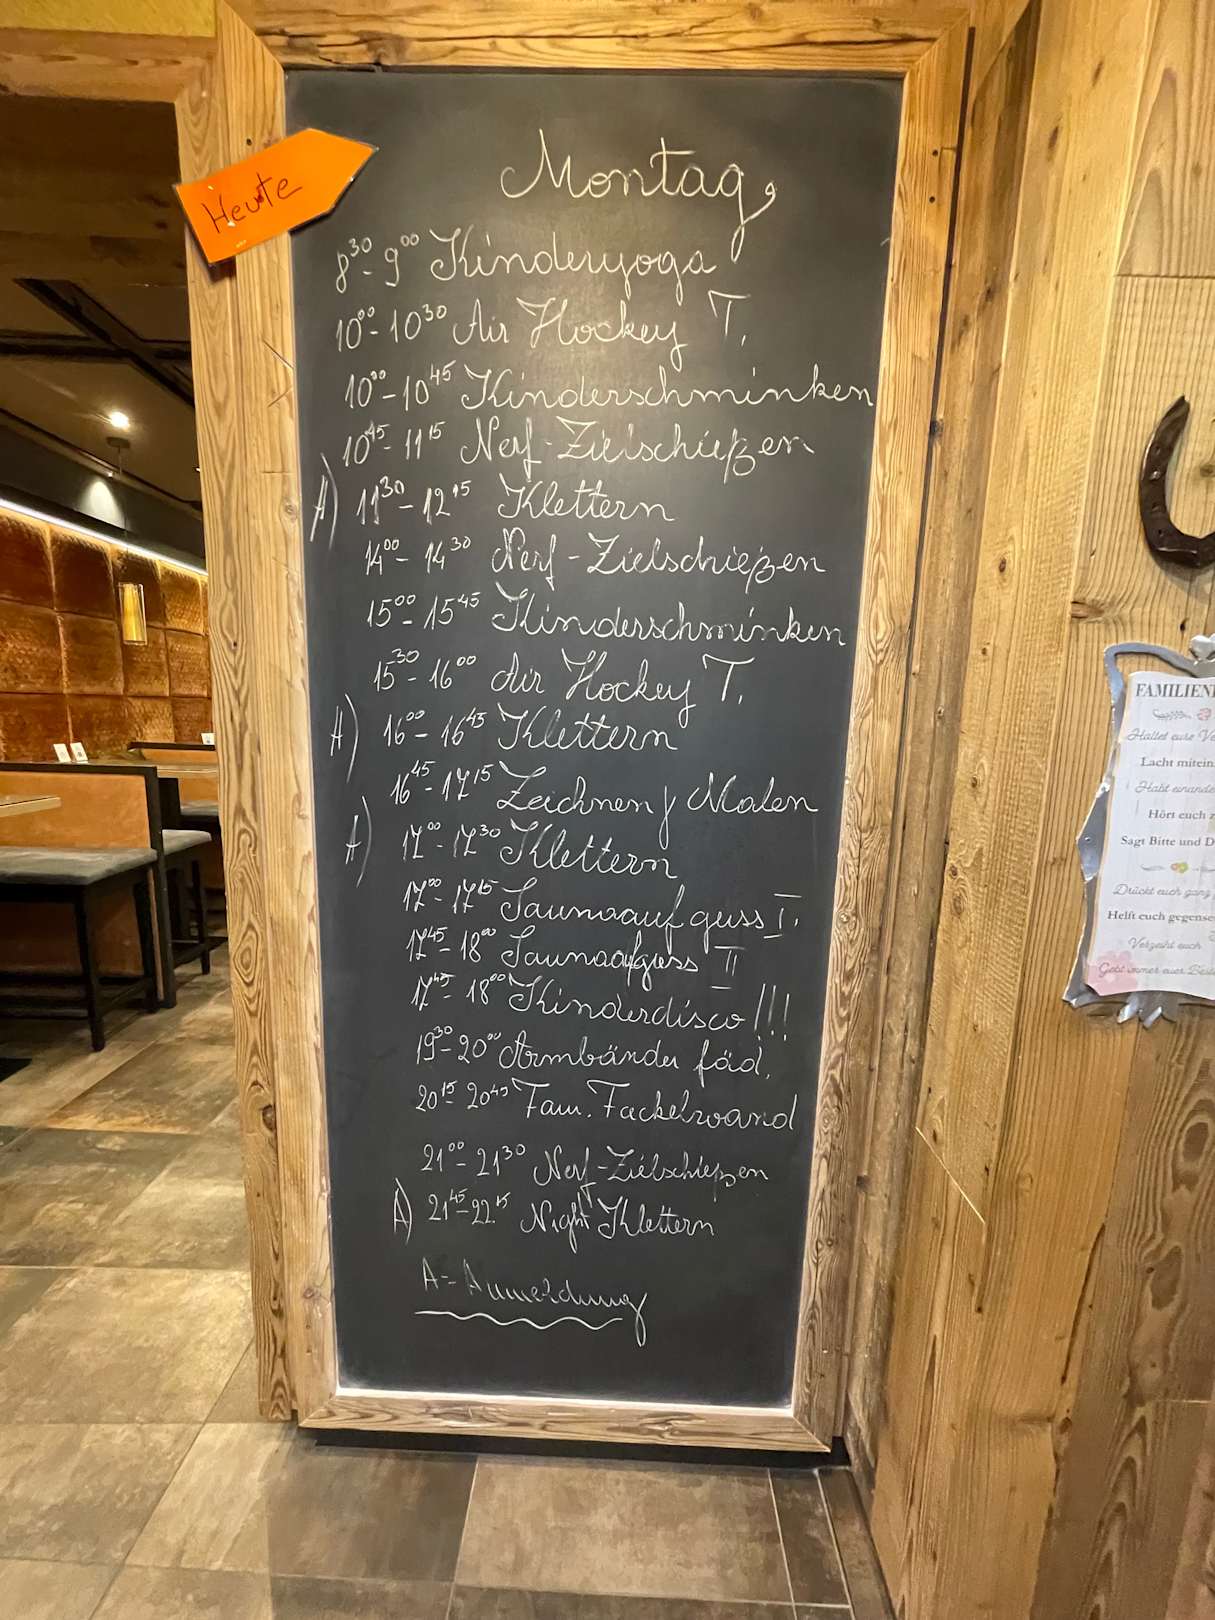 Heute
Montag,
8³⁰- 9⁰⁰ Kinderyoga
10⁰⁰- 10³⁰ Air Hockey T.
10⁰⁰-10⁴⁵ Kinderschminken
10⁴⁵-11¹⁵ Nerf-Zielschießen
A) 11³⁰-12¹⁵ Klettern
14⁰⁰- 14³⁰ Nerf-Zielschießen
15⁰⁰-15⁴⁵ Kinderschminken
15³⁰-16⁰⁰ Air Hockey T.
A) 16⁰⁰-16⁴⁵ Klettern
16⁴⁵-17¹⁵ Zeichnen / Malen
A) 17⁰⁰-17³⁰ Klettern
17⁰⁰-17¹⁵ Saunaaufguss I.
17⁴⁵- 18⁰⁰ Saunaafguss II
17⁴⁵- 18⁰⁰ Kinderdisco !!!
19³⁰-20⁰⁰ Armbänder fäd.
20¹⁵- 20⁴⁵ Fam. Fackelwand
21⁰⁰-21³⁰ Nerf-Zielschießen
A) 21⁴⁵-22¹⁵ Night Klettern
A-Anmeldung
FAMILIEN
Haltet eure
Lacht mitein
Habt einande
Hört euch z
Sagt Bitte und D
Drückt euch ganz
Helft euch gegense
Verzeiht euch
Gebt immer euer Beste